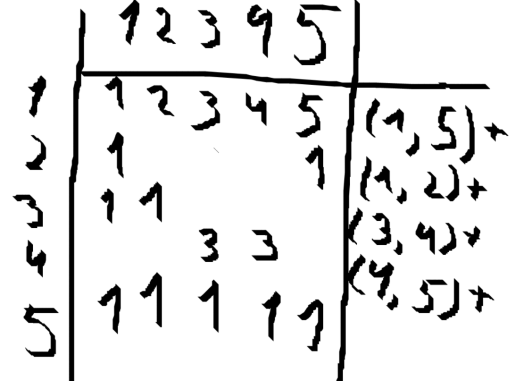 1 2 3 4 5
1 1 2 3 4 5 (1, 5)+
2 1 1 (1, 2)+
3 1 1 (3, 4)+
4 3 3 (4, 5)+
5 1 1 1 1 1